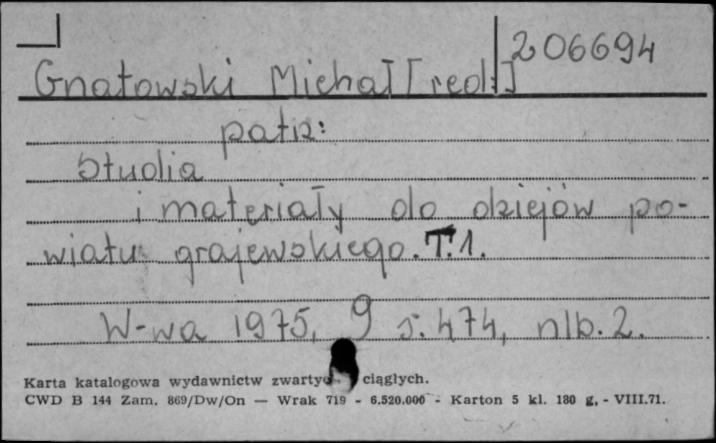 206694
Gnatowski Michał [red.]
patrz:
Studia
i materiały do dziejów po-
wiatu grajewskiego. T. 1.
W-wa 1975, 9 s. 474, nlb. 2.
Karta katalogowa wydawnictw zwartych ciągłych.
CWD B 144 Zam. 869/Dw/On — Wrak 719 - 6.520.000 - Karton 5 kl. 180 g. - VIII.71.